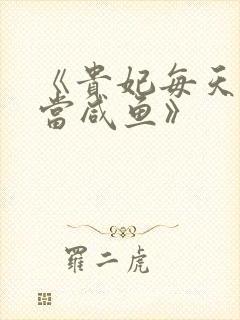 《贵妃每天
当咸鱼》
罗二虎